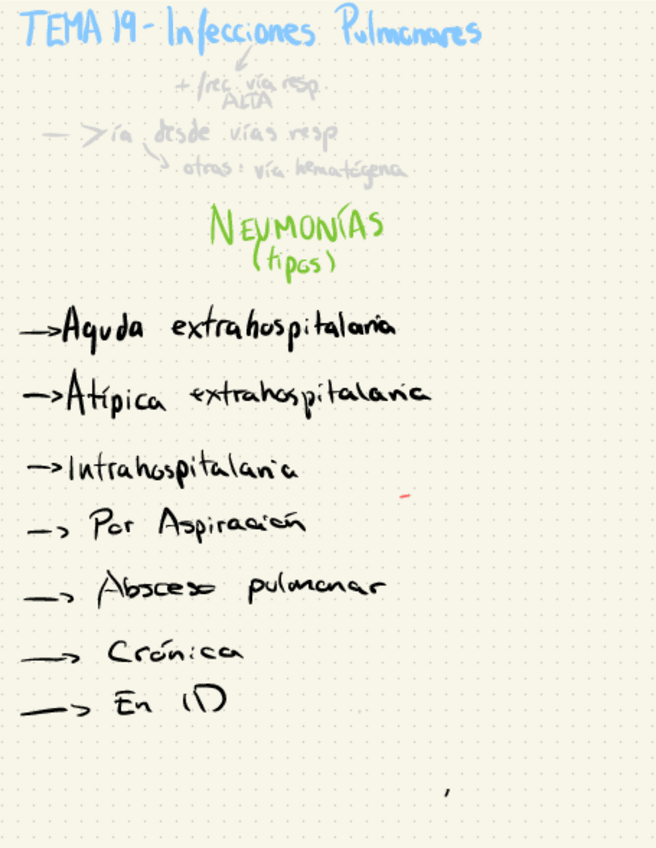 TEMA 19 - Infecciones Pulmonares
+ frec vía resp
ALTA
— > ía desde vías resp
↳ otras: vía hematógena
NEUMONÍAS
(tipos)
→ Aguda extrahospitalaria
→ Atípica extrahospitalaria
→ Intrahospitalaria
→ Por Aspiración
→ Absceso pulmonar
→ Crónica
→ En ID